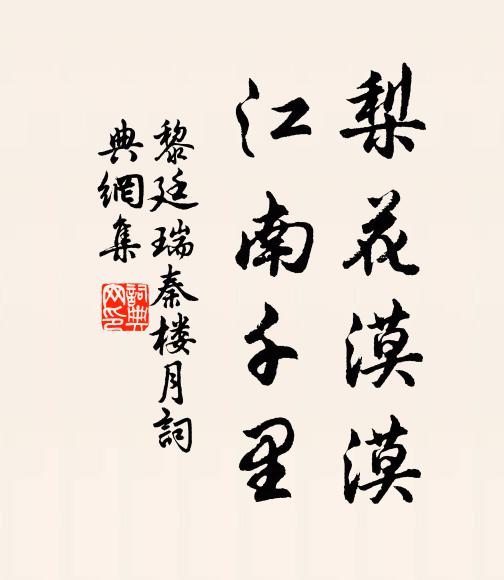 梨花漠漠
江南千里
黎廷瑞秦楼月詞
典網集
詞典
网印